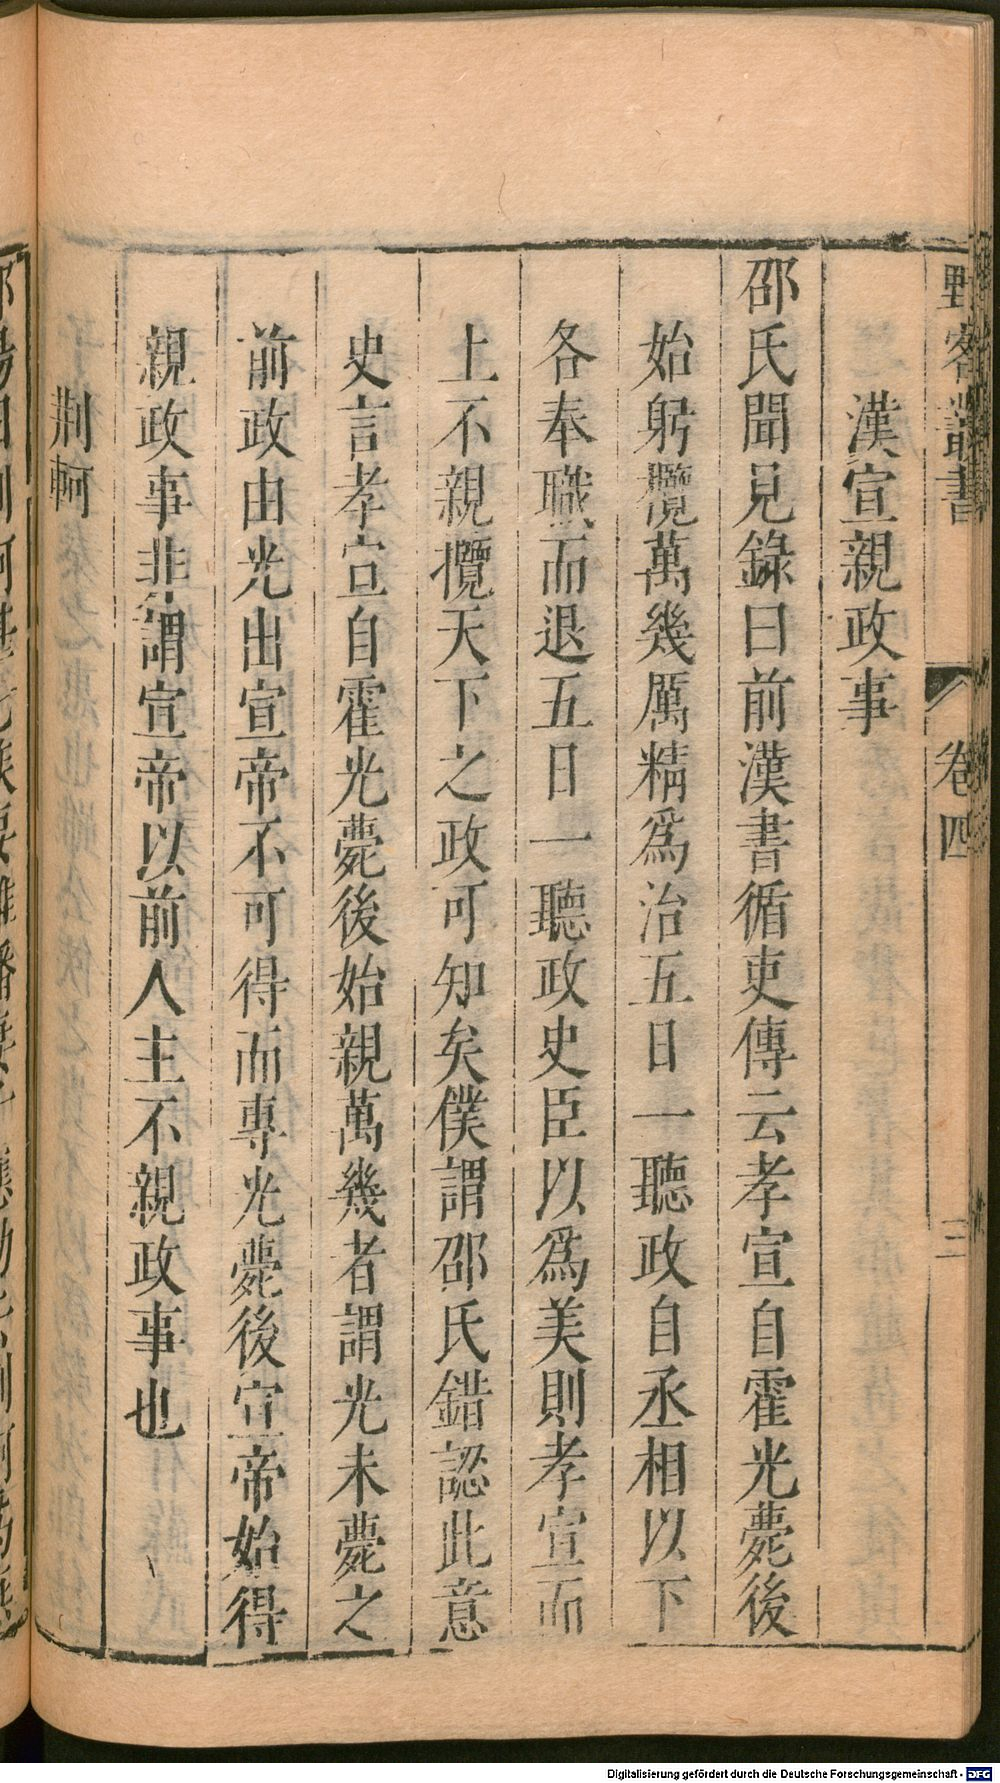 野客叢書
卷四
三
漢宣親政事
邵氏聞見錄曰前漢書循吏傳云孝宣自霍光薨後
始躬攬萬幾厲精爲治五日一聽政自丞相以下
各奉職而退五日一聽政史臣以爲美則孝宣而
上不親攬天下之政可知矣僕謂邵氏錯認此意
史言孝宣自霍光薨後始親萬幾者謂光未薨之
前政由光出宣帝不可得而專光薨後宣帝始得
親政事非謂宣帝以前人主不親政事也
荆軻
Digitalisierung gefördert durch die Deutsche Forschungsgemeinschaft - DFG